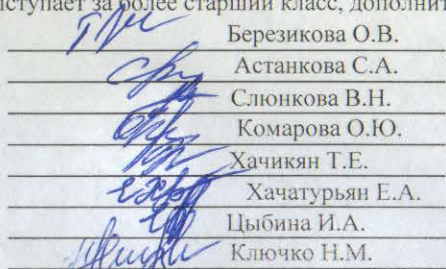 ступает за более старший класс, дополнит
Березикова О.В.
Астанкова С.А.
Слюнкова В.Н.
Комарова О.Ю.
Хачикян Т.Е.
Хачатурьян Е.А.
Цыбина И.А.
Ключко Н.М.